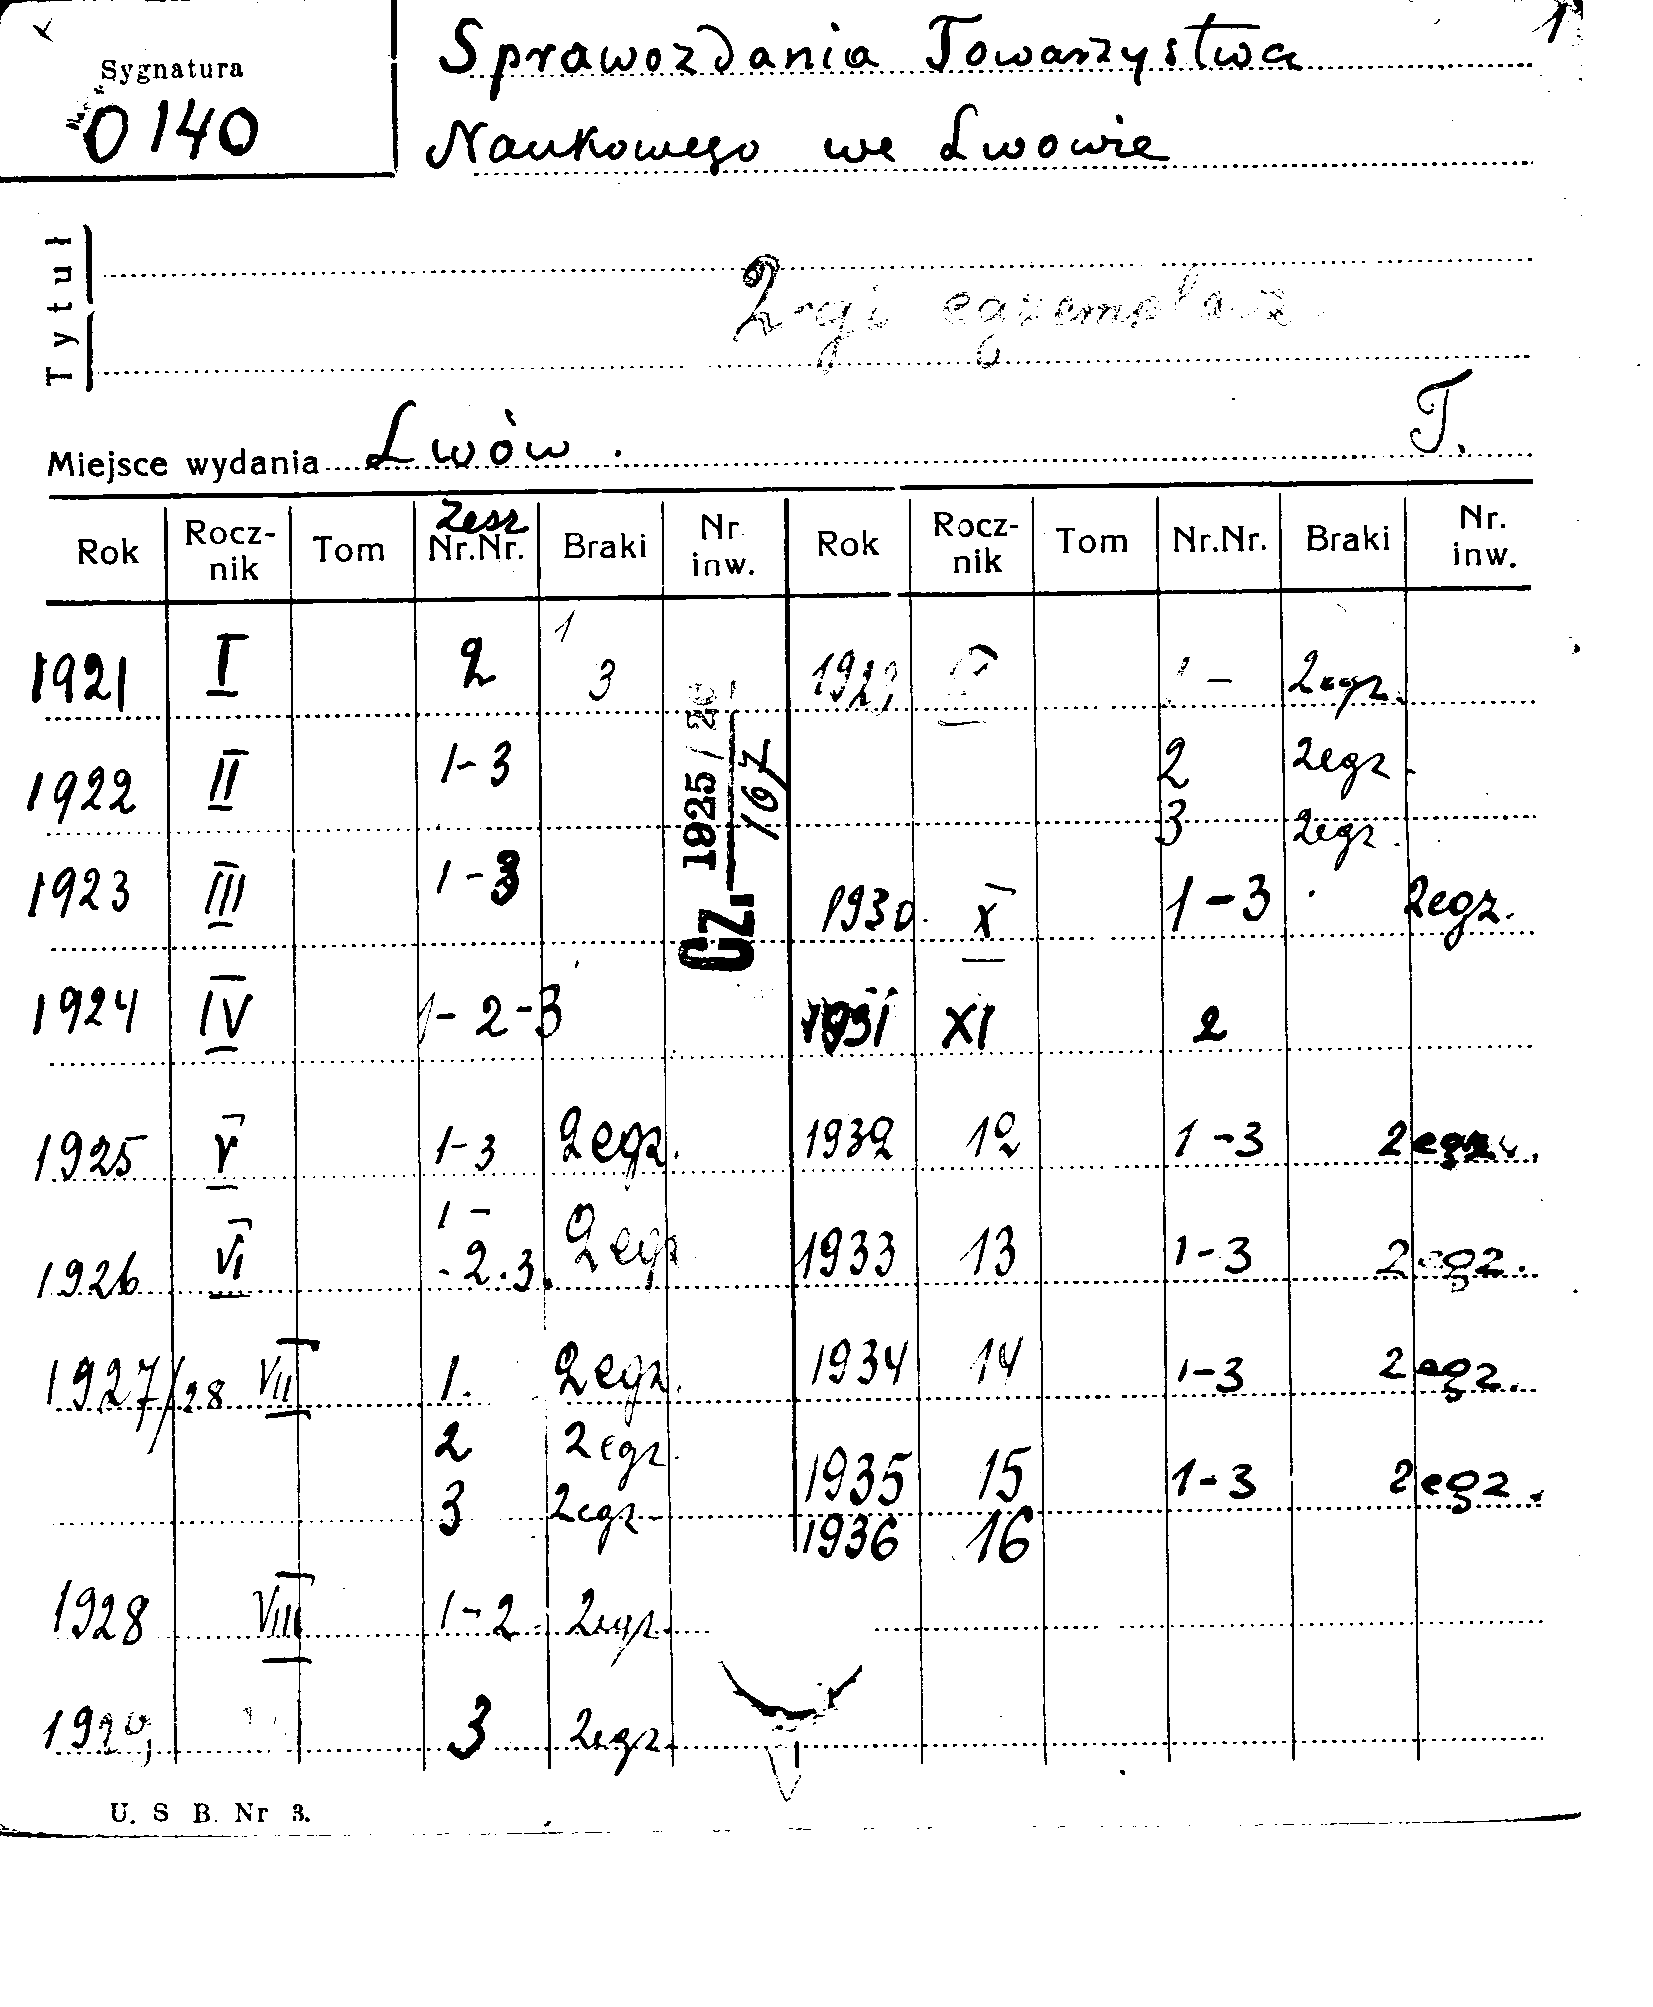 1
Sygnatura
O 140
Sprawozdania Towarzystwa
Naukowego we Lwowie
Tytuł
2-gi egzemplarz
Miejsce wydania Lwów. T.
Rok Rocz-nik Tom Zesz Nr.Nr. Braki Nr inw. Rok Rocz-nik Tom Nr.Nr. Braki Nr. inw.
1921 I 2 1 3 1929 1 - 2egz.
1922 II 1-3 2 2egz.
3 2egz.
1923 III 1-3 1930. X 1-3 2egz.
Cz. 1925/ 167
1924 IV 1-2-3 1931 XI 2
1925 V 1-3 2egz. 1932 12 1-3 2egz.
1926 VI 1- -2.3. 2egz 1933 13 1-3 2egz.
1927/28 VII 1. 2egz. 1934 14 1-3 2egz.
2 2egz.
3 2egz. 1935 15 1-3 2egz.
1936 16
1928 VIII 1-2 2egz.
1929 3 2egz.
U. S B. Nr 3.